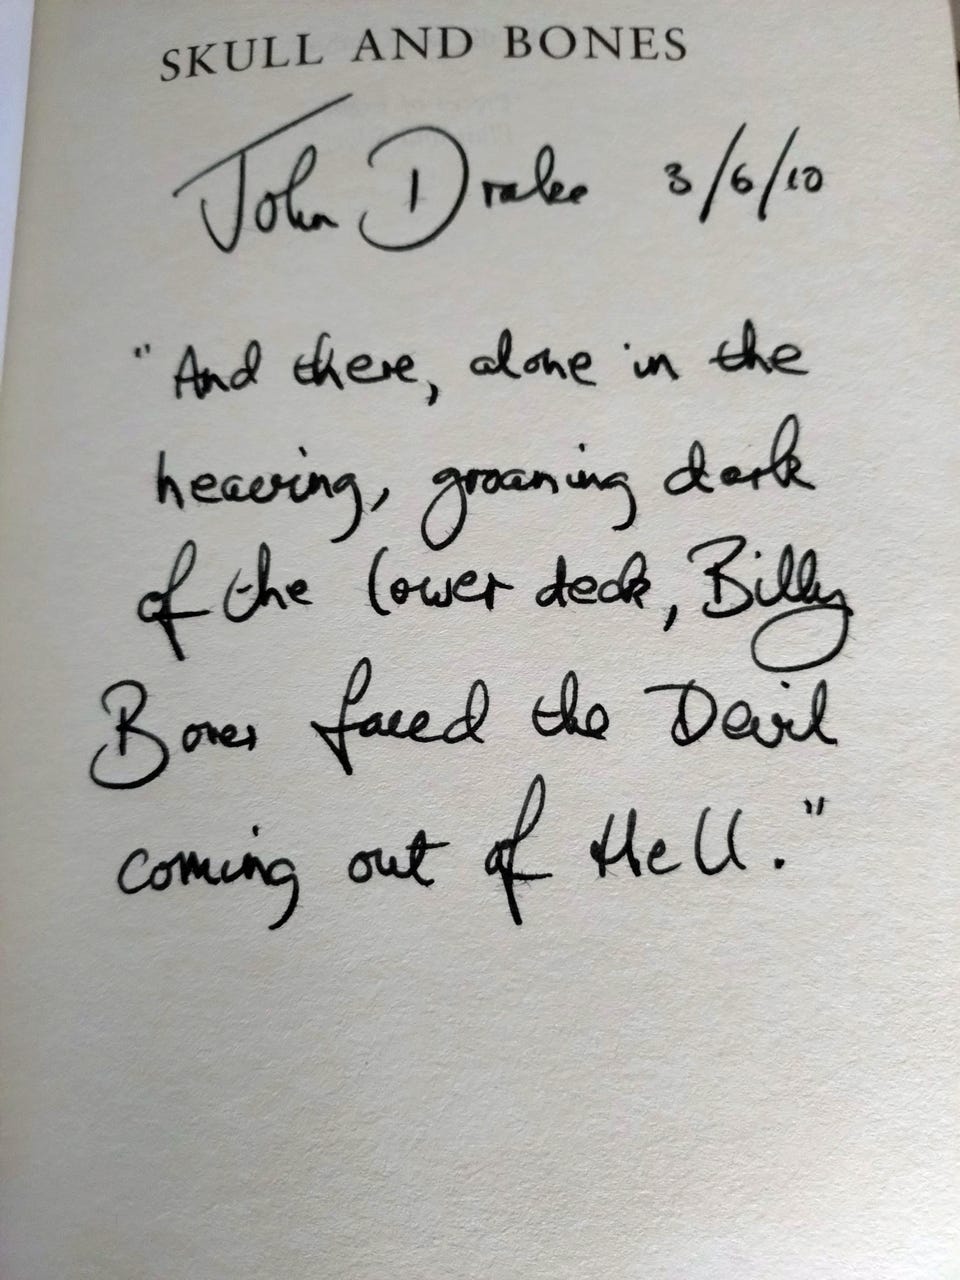 SKULL AND BONES
John Drake 3/6/10
"And there, alone in the
heaving, groaning dark
of the lower deck, Billy
Bones faced the Devil
coming out of Hell."